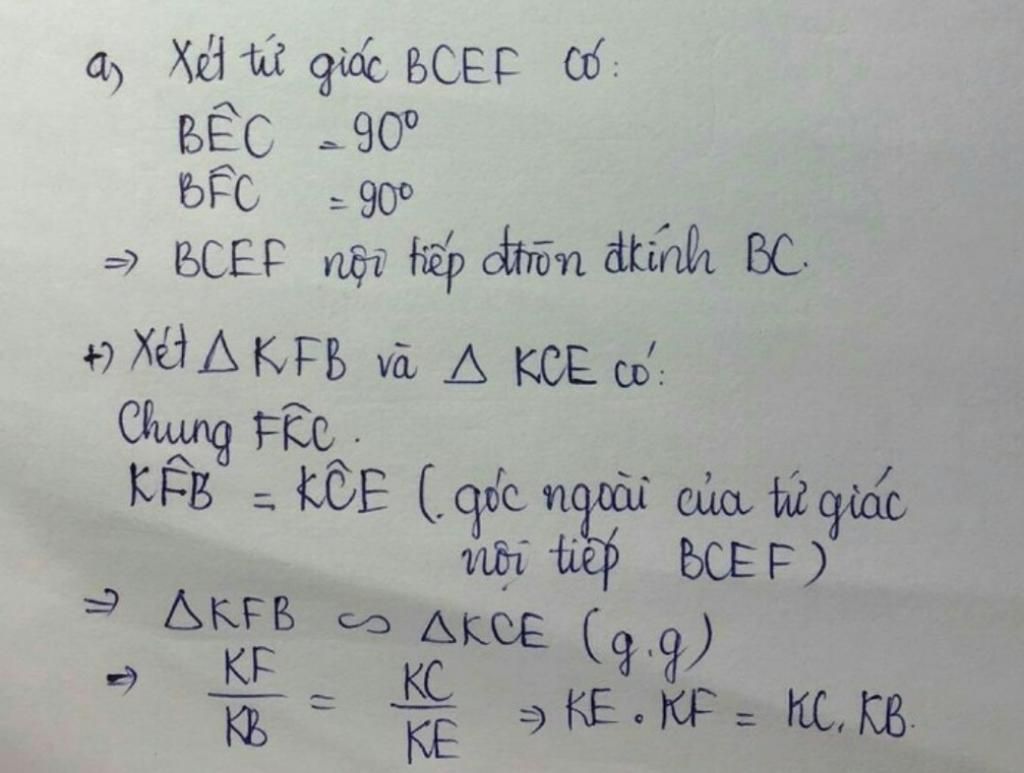 a, Xét tứ giác BCEF có:
BÊC = 90°
BF̂C = 90°
⇒ BCEF nội tiếp đtròn đkính BC.
+) Xét △ KFB và △ KCE có:
Chung FK̂C.
KF̂B = KĈE (góc ngoài của tứ giác
nội tiếp BCEF)
⇒ △KFB ∽ △KCE (g.g)
⇒ KF/KB = KC/KE ⇒ KE . KF = KC. KB.